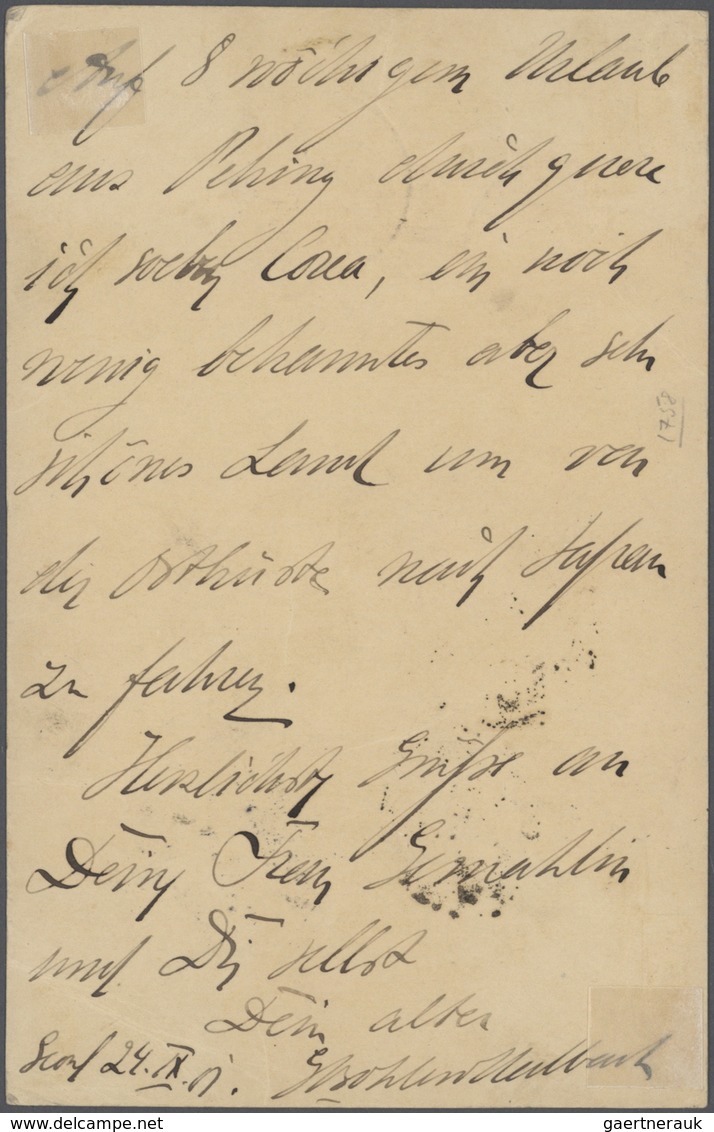 Auf 8 wöchigem Urlaub
aus Peking durchquere
ich soeben Corea, ein noch
wenig bekanntes aber sehr
schönes Land um von
der Ostküste nach Japan
zu fahren.
Herzlichste Grüße an
Deine Frau Gemahlin
und Dich selbst
Dein alter
Seoul 24. IX. 01. GvBohlenHalbach
1758
gaertnerauk